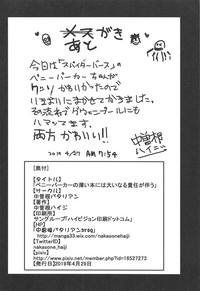 あとがき
今回は「スパイダーバース」の
ペニーパーカーちゃんが
クソかわいかったので
いきおいにまかせてかきました。
その流れでグウェンプールにも
ハマってます。
両方かわいい!!
2019 4/27 AM 7:54
中曽根
ハイジ
【奥付】
【タイトル】
「ペニーパーカーの薄い本には大いなる責任が伴う」
【サークル】
中曽根バタリアン
【発行者】
中曽根ハイジ
【印刷所】
サングループ「ハイビジョン印刷ドットコム」
【「中曽根バタリアン」HP】
http://manga33.wix.com/nakasonehaiji
【TwitterID】
nakasone_haiji
【pixiv】
http://www.pixiv.net/member.php?id=16527273
【発行日】2019年4月29日